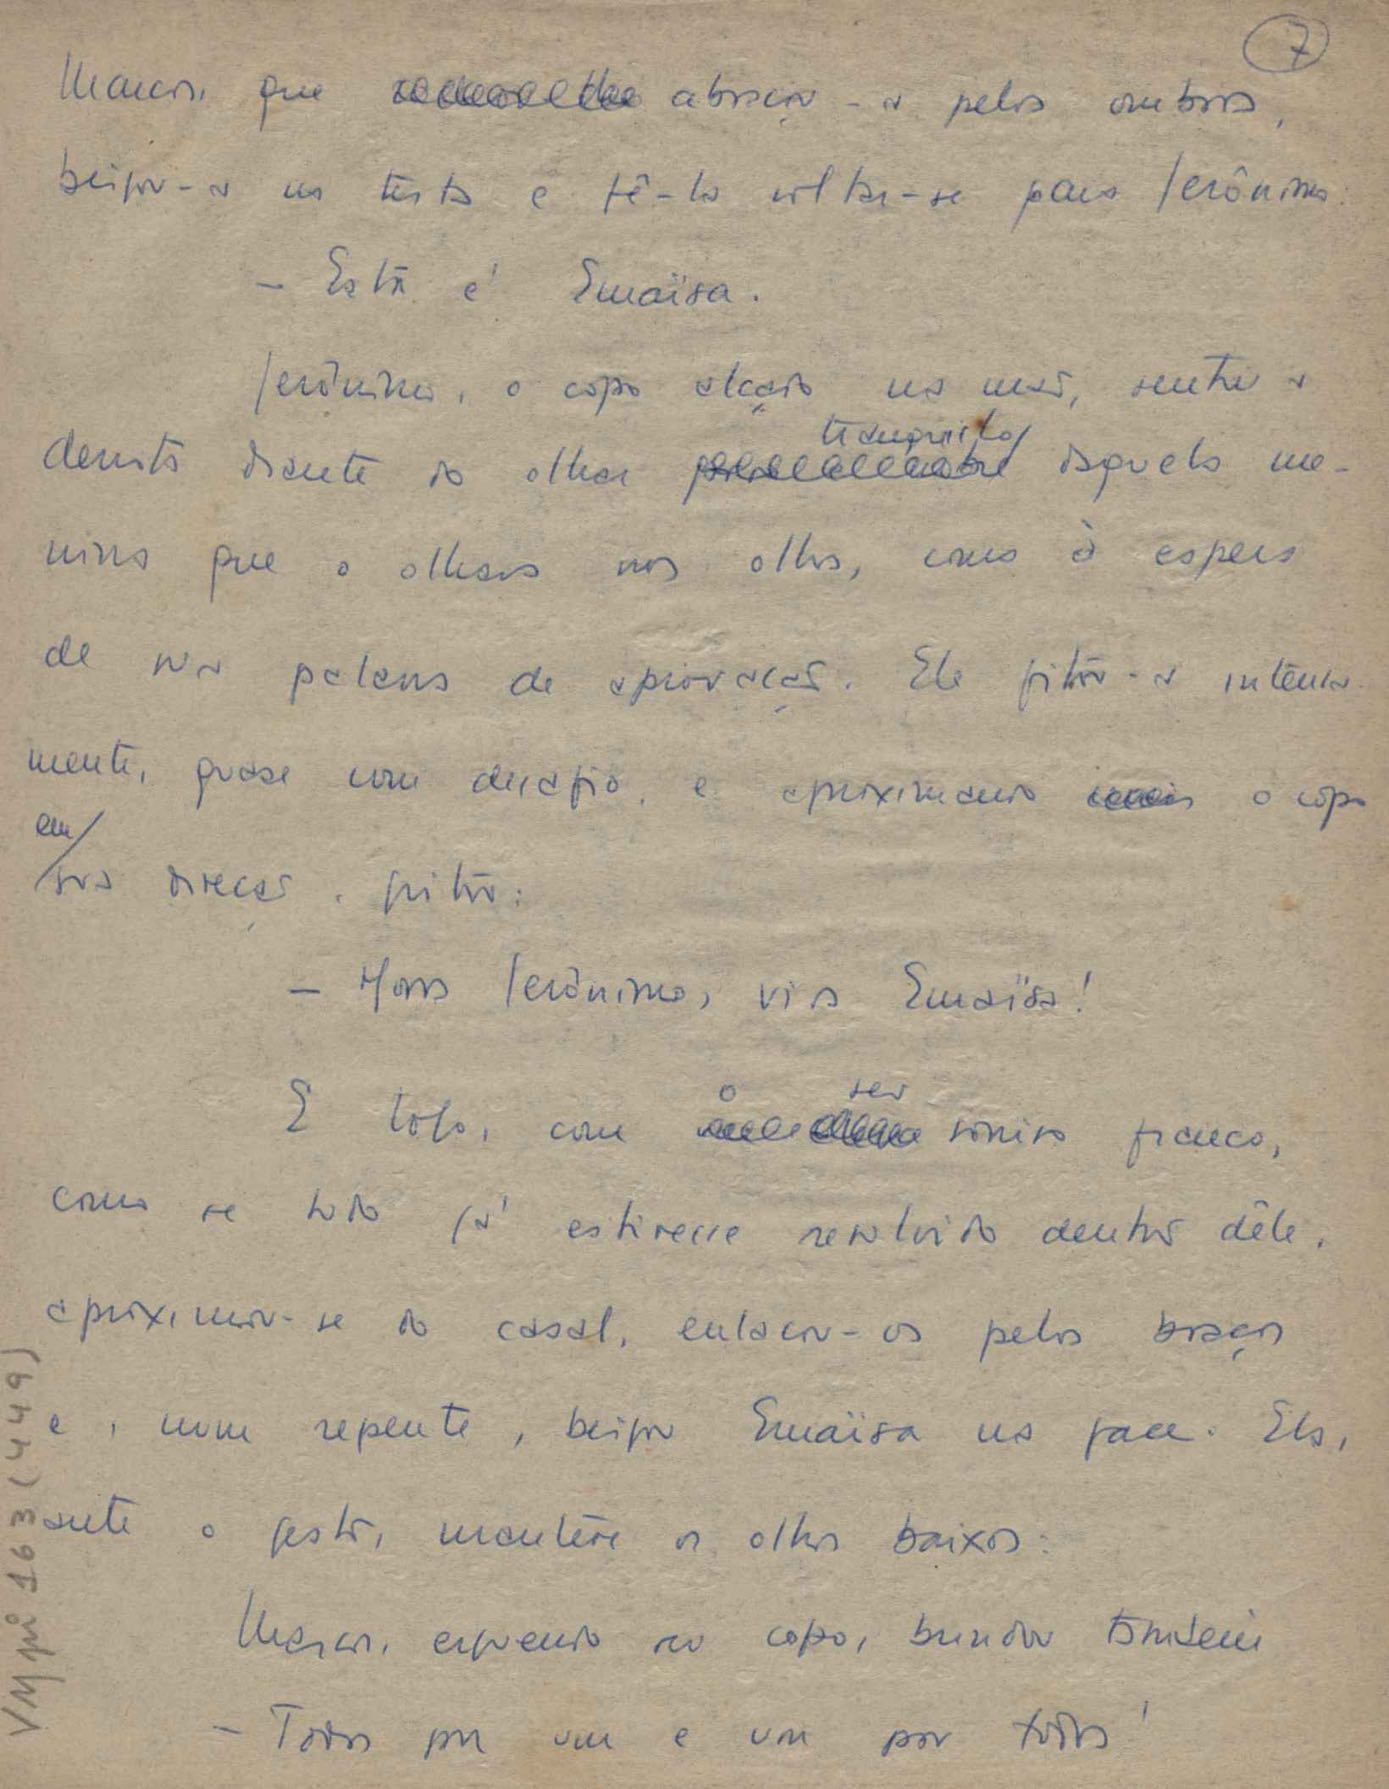 7
Marcos, que abraçou-a pelos ombros,
beijou-a na testa e fê-la voltar-se para Jerônimo:
- Esta é Emaïsa.
Jerônimo, o copo alçado na mão, sentiu a
derrota diante do olhar tranquilo daquela me-
nina que o olhava nos olhos, como à espera
de sua palavra de aprovação. Ele fitou-a intensa-
mente, quase com desafio, e aproximando o copo
em sua direção, gritou:
- Hans Jerônimo, viva Emaïsa!
E logo, com o seu sorriso franco,
como se tudo já estivesse resolvido dentro dêle,
aproximou-se do casal, enlaçou-os pelos braços
e, num repente, beijou Emaïsa na face. Ela,
ante o gesto, manteve os olhos baixos:
Marcos, erguendo seu copo, brindou também
- Todos por um e um por todos!
VM pi 163 (449)